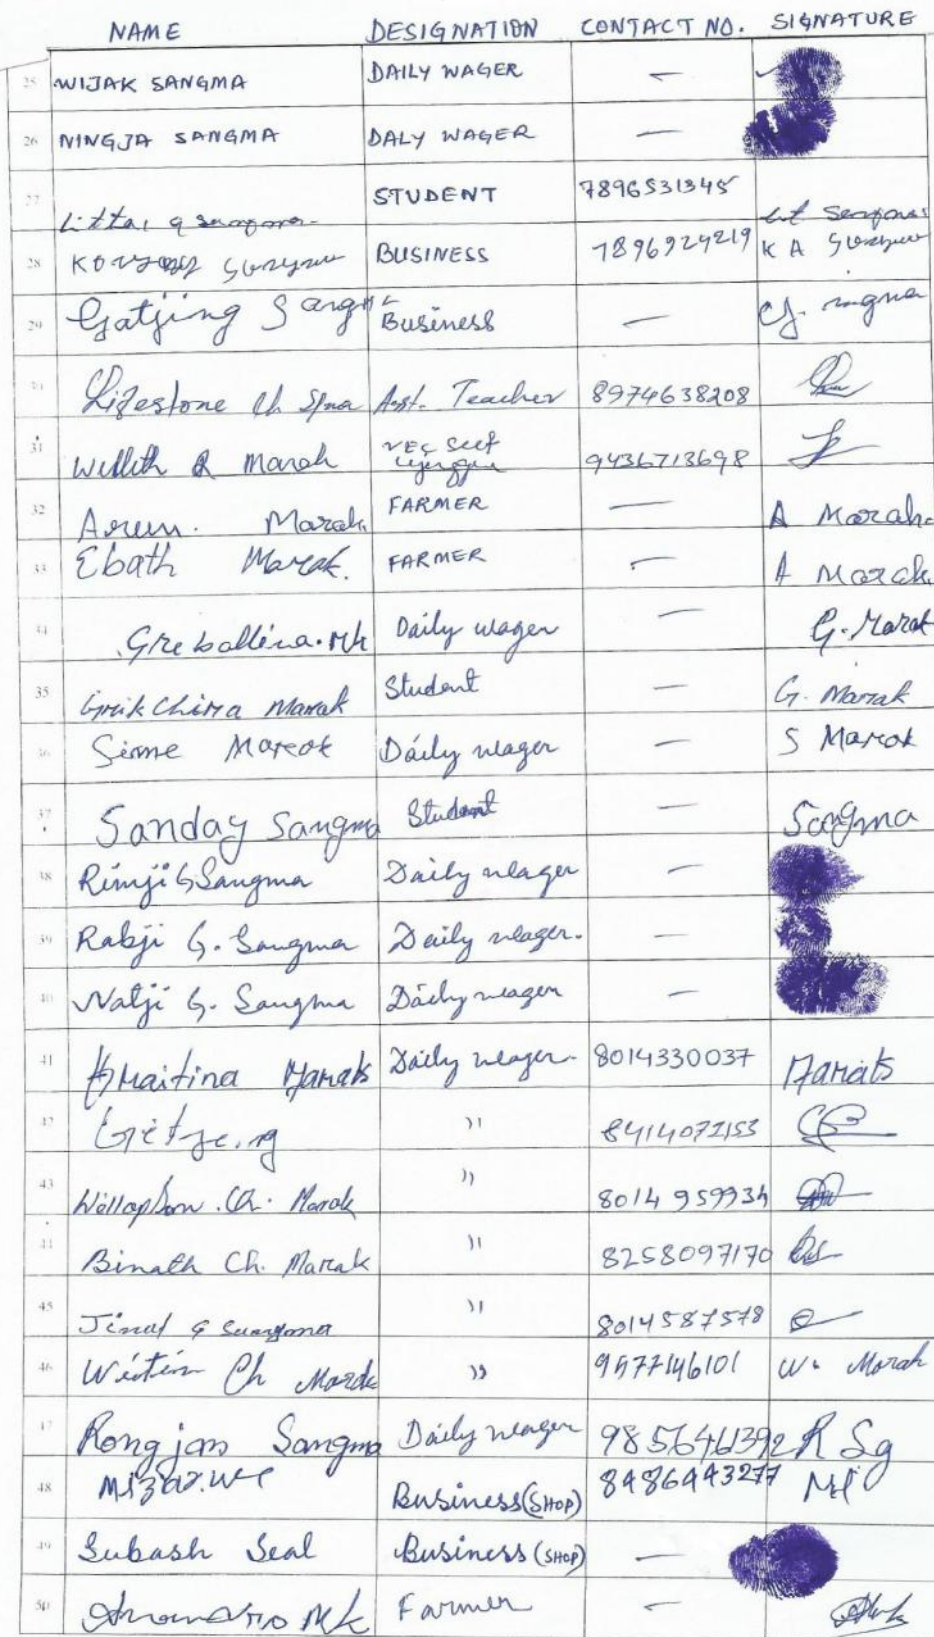 NAME DESIGNATION CONTACT NO. SIGNATURE
25 WIJAK SANGMA DAILY WAGER —
26 NINGJA SANGMA DALY WAGER —
27 STUDENT 7896531345
28 BUSINESS 7896924219 K A
29 Gatjing Sangma Business —
Lifestone Ch Sma Asst. Teacher 8974638208
31 Willith R Marak VEC 9436713698
32 Arun. Marak. FARMER — A Marak.
33 Ebath Marak. FARMER — A Marak.
34 Greballina. Mk Daily wager — G. Marak
35 Grikchira Marak Student — G. Marak
36 Sime Marak Daily wager — S Marak
37 Sanday Sangma Student — Sangma
38 Rimji G Sangma Daily wager —
39 Rabji G. Sangma Daily wager. —
40 Natji G. Sangma Daily wager —
41 Marak Daily wager. 8014330037 Marak
42 " 8414072153
43 Ch. Marak " 8014959934
44 Binath Ch. Marak " 8258097170
45 Jinal G Sangma " 8014587578
46 Ch Marak " 9577146101 W. Marak
47 Rongjan Sangma Daily wager 9856461392 R Sg
48 Business (SHOP) 8486443277
49 Subash Seal Business (SHOP) —
50 Mk Farmer —